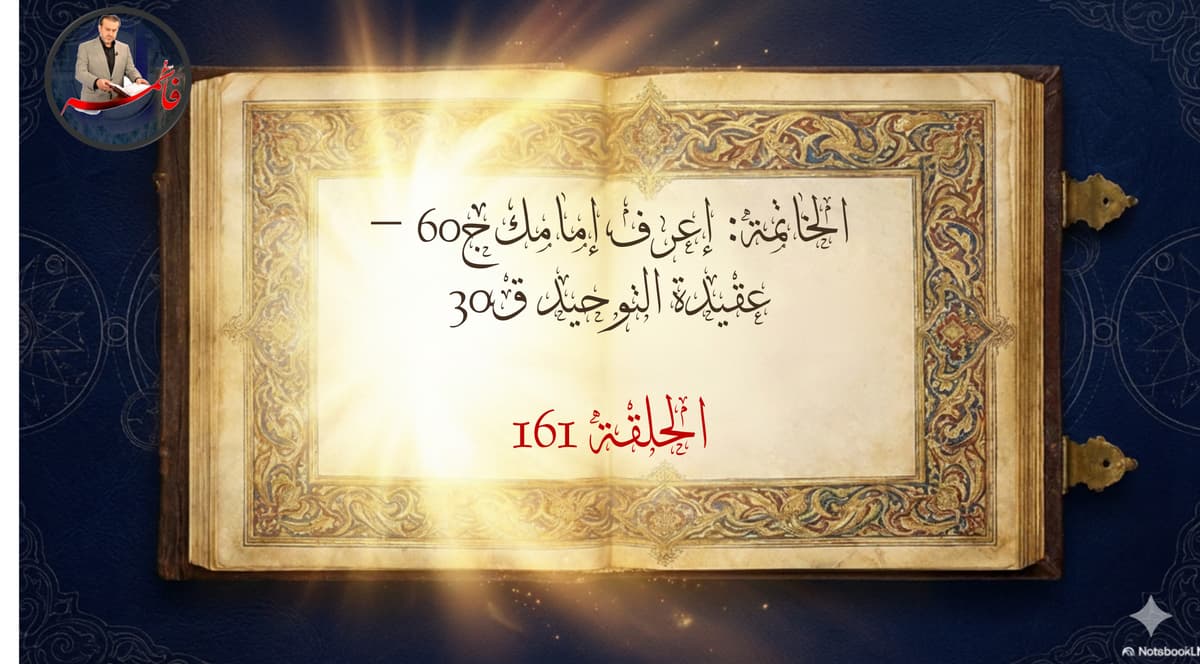 فاطمة
الخاتمة: إعرف إمامك ج60 –
عقيدة التوحيد ق30
الحلقة 161
NotsbookL